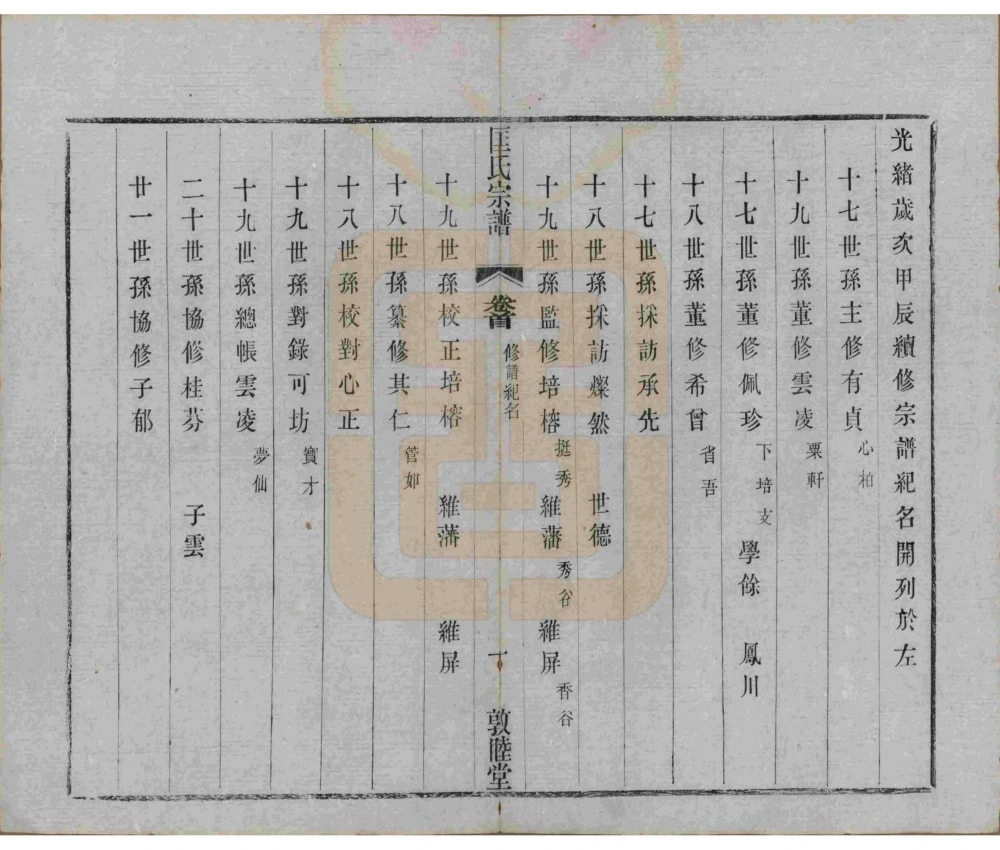 光緒歲次甲辰續修宗譜紀名開列於左
十七世孫主修有貞心柏
十九世孫董修雲凌粟軒
十七世孫董修佩珍下培支 學餘 鳳川
十八世孫董修希曾省吾
十七世孫採訪承先
十八世孫採訪燦然 世德
十九世孫監修培榕挺秀 維藩秀谷 維屏香谷
匡氏宗譜 卷首 修譜紀名 一 敦睦堂
十九世孫校正培榕 維藩 維屏
十八世孫纂修其仁管如
十八世孫校對心正
十九世孫對錄可坊寶才
十九世孫總帳雲凌夢仙
二十世孫協修桂芬 子雲
廿一世孫協修子郁